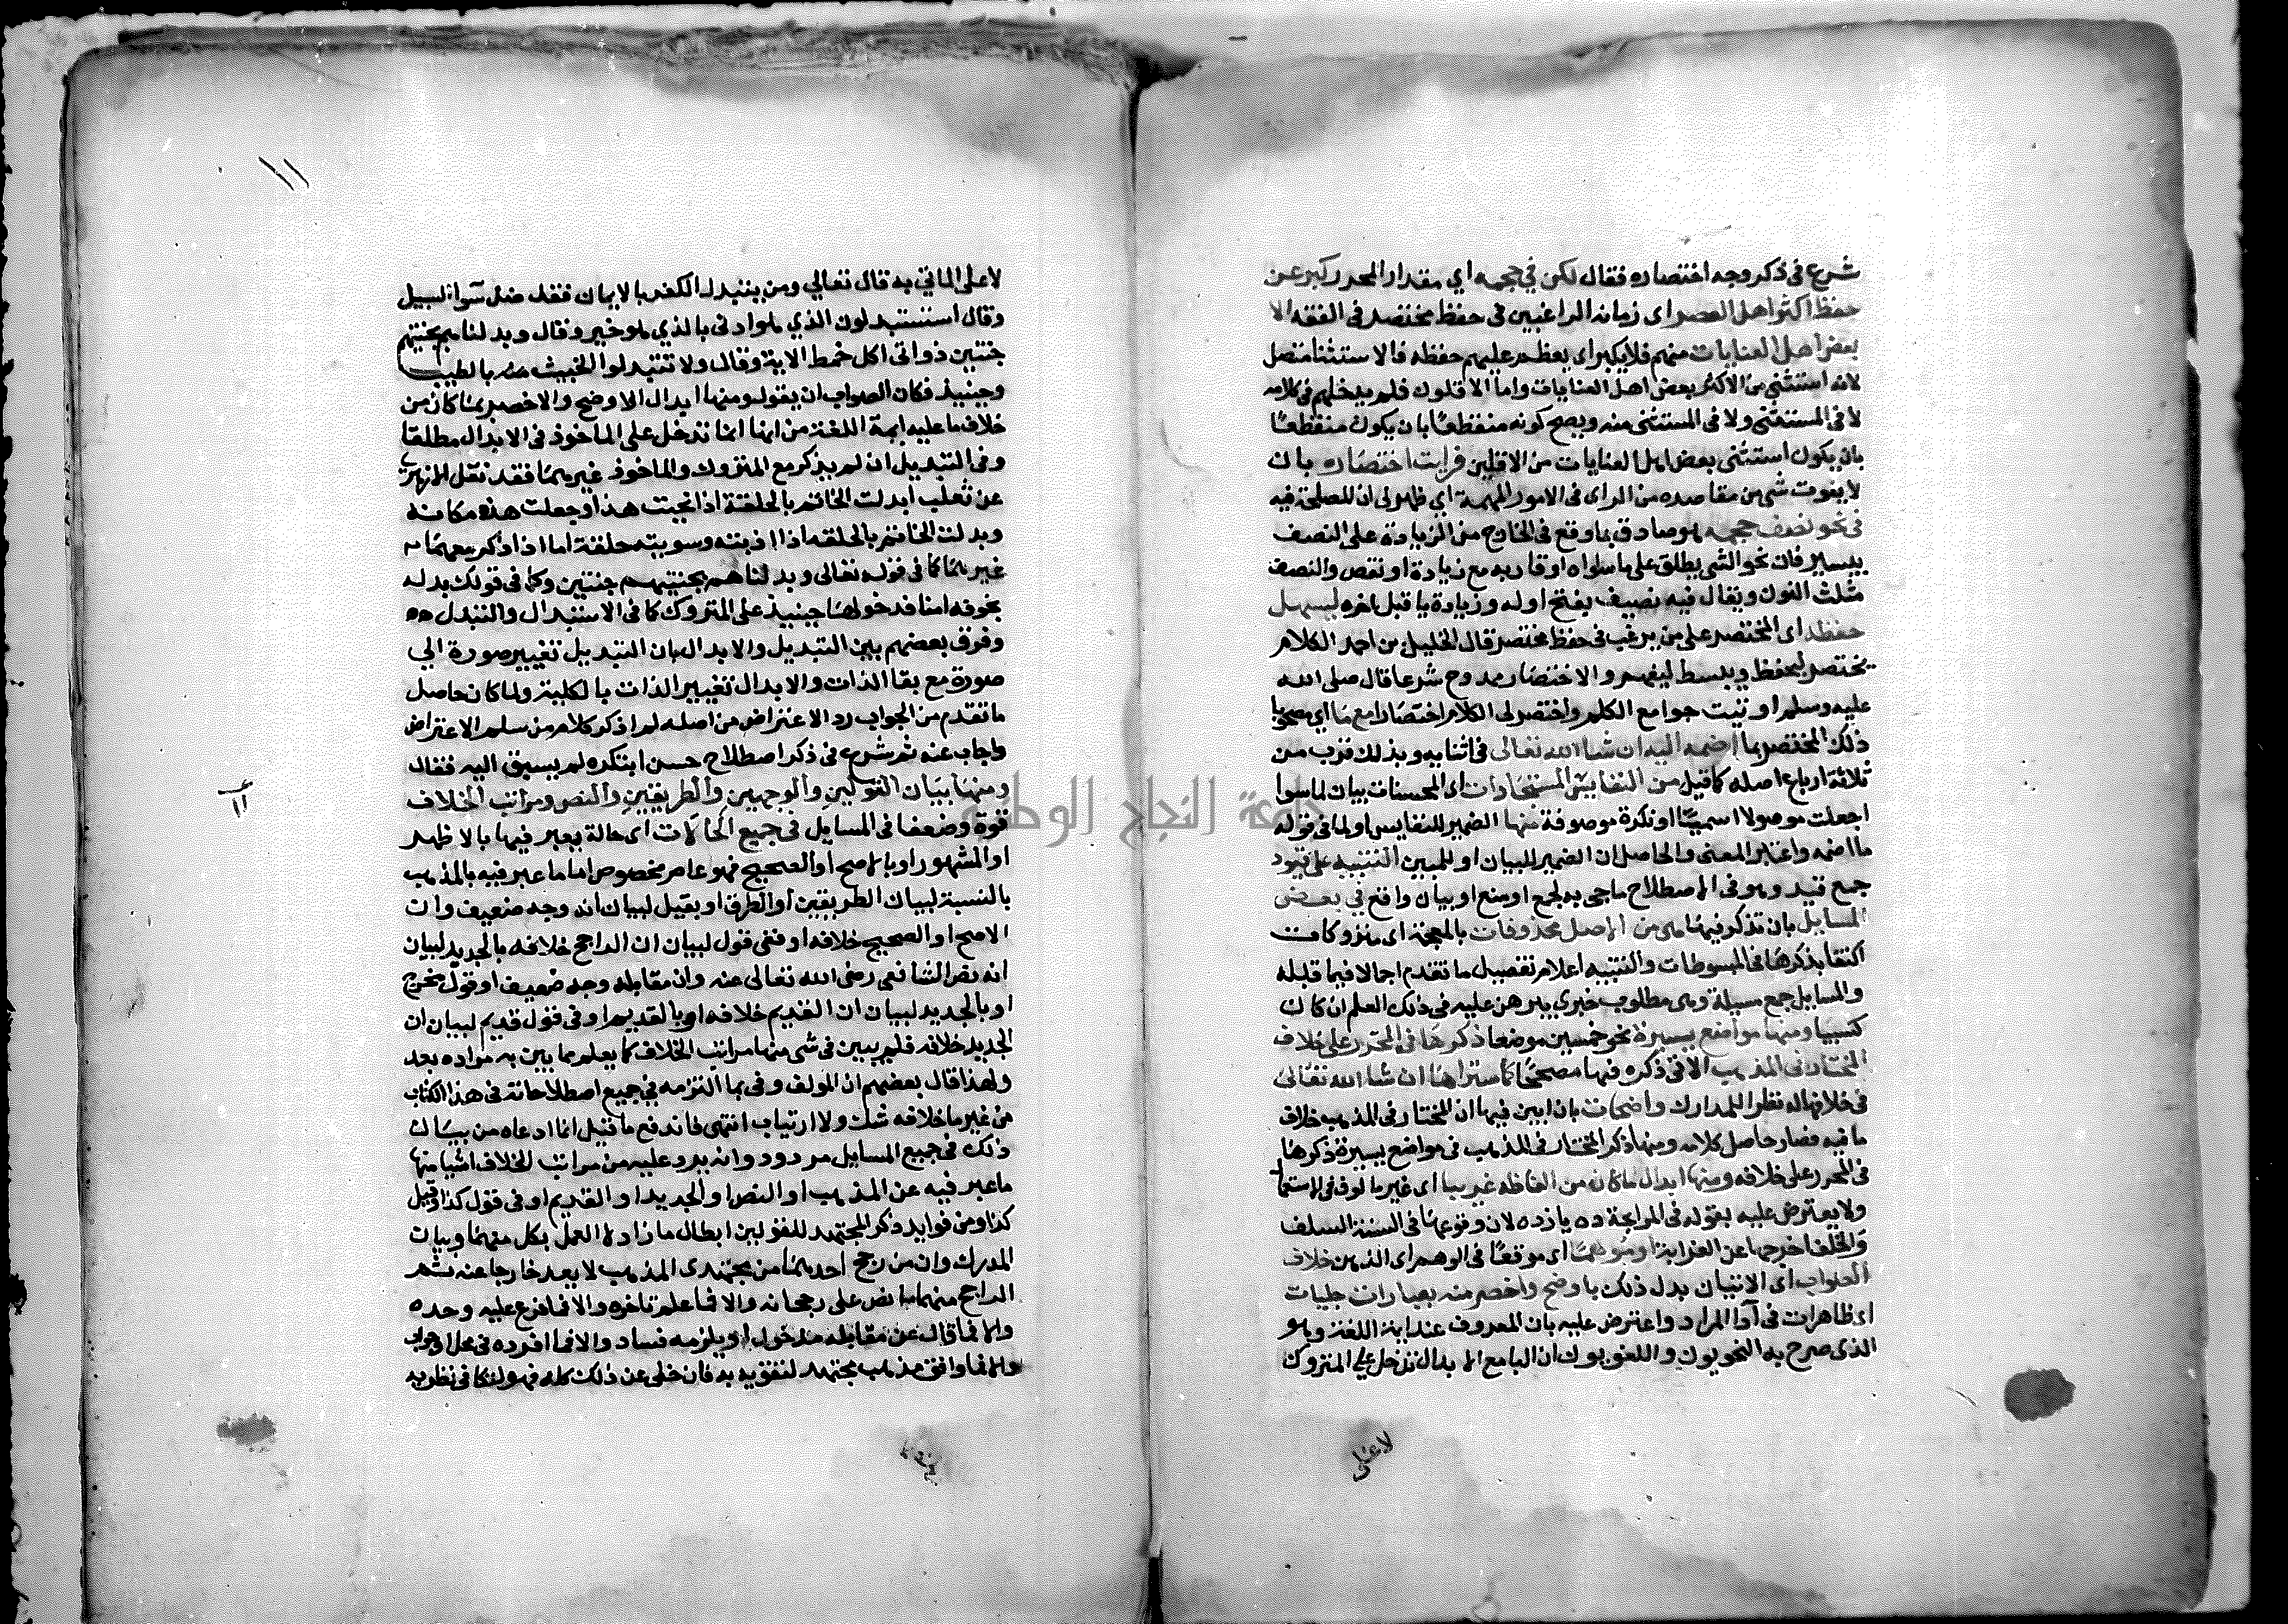 شرع في ذكر وجه اختصاره فقال لكن في حجمه اي مقدار المحرر كبر عن
حفظ اكثر اهل العصر اى زمانه الراغبين فى حفظ مختصر فى الفقه الا
بعض اهل العنايات منهم فلا يكبر اى يعظم عليهم حفظه فالاستثنا متصل
لانه استثنى من الاكثر بعض اهل العنايات واما الاقلون فلم يدخلهم فى كلامه
لا فى المستثنى ولا فى المستثنى منه ويصح كونه منقطعًا بان يكون منقطعًا
بان يكون استثنى بعض اهل العنايات من الاقلين فرايت اختصاره بان
لا يفوت شى من مقاصده من الراى فى الامور المهمة اي ظهر لى ان المصلحة فيه
فى نحو نصف حجمه هو صادق بما وقع فى الخارج من الزيادة على النصف
بيسير فان نحو الشى يطلق على ما ساواه او قاربه مع زيادة او نقص والنصف
مثلث النون ويقال فيه نصيف بفتح اوله وزيادة يا قبل اخره ليسهل
حفظه اى المختصر على من يرغب فى حفظ مختصر قال الخليل بن احمد الكلام
يختصر ليحفظ ويبسط ليفهم والاختصار ممدوح شرعا قال صلى الله
عليه وسلم اوتيت جوامع الكلم واختصر لى الكلام اختصارا مع ما اي مصحوبا
ذلك المختصر بما اضمه اليه ان شا الله تعالى فى اثنايه وبذلك قرب من
ثلاثة ارباع اصله كما قيل من النفايس المستجادات اى المحسنات بيان لما سوا
اجعلت موصولا اسميًا او نكرة موصوفة منها الضمير للنفايس او لما فى قوله
ما اضمه واعتبر المعنى والحاصل ان الضمير للبيان او للمبين التنبيه على قيود
جمع قيد وهو فى الاصطلاح ما جى به لجمع او منع او بيان واقع في بعض
المسايل بان تذكر فيها هى من الاصل محذوفات بالمعجمة اى متروكات
اكتفا بذكرها فى المبسوطات والتنبيه اعلام تفصيل ما تقدم اجمالا فيما قبله
والمسايل جمع مسيلة وهى مطلوب خبرى يبرهن عليه فى ذلك العلم ان كان
كسبيا ومنها مواضع يسيرة نحو خمسين موضعا ذكرها في المحرر على خلاف
المختار فى المذهب الاتى ذكره فيها مصححًا كما ستراها ان شا الله تعالى
فى خلافها له نظرا للمدارك واضحات بان ابين فيها ان المختار فى المذهب خلاف
ما فيه فصار حاصل كلامه ومنها ذكر المختار فى المذهب فى مواضع يسيرة ذكرها
فى المحرر على خلافه ومنها ابدال ما كان من الفاظه غريبا اى غير مالوف فى الاستعما
ولا يعترض عليه بقوله فى المرابحة ده يازده لان وقوعها فى السنة السلف
والخلف اخرجها عن الغرابة او موهمًا اى موقعًا فى الوهم اى الذهن خلاف
الصواب اى الاتيان بدل ذلك باوضح واخصر منه بعبارات جليات
اى ظاهرات فى آدا المراد واعترض عليه بان المعروف عند اية اللغة وهو
الذى صرح به النحويون واللغويون ان البا مع الابدال تدخل على المتروك
لا على
لا على الماتي به قال تعالي ومن يتبدل الكفر بالايمان فقد ضل سوآ السبيل
وقال اتستبدلون الذي هو ادنى بالذي هو خير وقال وبدلناهم بجنتيهم
جنتين ذواتى اكل خمط الاية وقال ولا تتبدلوا الخبيث منه بالطيب
وحينيذ فكان الصواب ان يقول ومنها ابدال الاوضح والاخصر بما كان من
خلاف ما عليه ايمة اللغة من انها انما تدخل على الماخوذ فى الابدال مطلقا
وفى التبديل ان لم يذكر مع المتروك والماخوذ غيرهما فقد نقل الازهرى
عن ثعلب ابدلت الخاتم بالحلقة اذا نحيت هذا وجعلت هذه مكانه
وبدلت الخاتم بالحلقه اذا اذبته وسويته حلقة اما اذا ذكر معهما
غيرهما كما فى قوله تعالى وبدلناهم بجنتيهم جنتين وكما فى قولك بدله
بخوفه امنا فدخولها حينيذ على المتروك كما فى الاستبدال والتبدل
وفرق بعضهم بين التبديل والابدال بان التبديل تغيير صورة الي
صورة مع بقا الذات والابدال تغيير الذات بالكلية ولما كان حاصل
ما تقدم من الجواب رد الاعتراض من اصله لم اذكر كلام من سلم الاعتراض
واجاب عنه ثم شرع فى ذكر اصطلاح حسن ابتكره لم يسبق اليه فقال
ومنها بيان القولين والوجهين والطريقين والنص ومراتب الخلاف
قوة وضعفا فى المسايل فى جميع الحالات اى حالة يعبر فيها بالاظهر
او المشهور او بالاصح او الصحيح فهو عام مخصوص اما ما عبر فيه بالمذهب
بالنسبة لبيان الطريقين او الطرق او بقيل لبيان انه وجه ضعيف وان
الاصح او الصحيح خلافه او فى قول لبيان ان الراجح خلافه بالجديد لبيان
انه نص الشافعى رضى الله تعالى عنه وان مقابله وجه ضعيف او قول مخرج
او بالجديد لبيان ان القديم خلافه او بالقديم او فى قول قديم لبيان ان
الجديد خلافه فلم يبين فى شى منها مراتب الخلاف كما يعلم مما يبين به مراده بعد
ولهذا قال بعضهم ان المولف وفى بما التزمه في جميع اصطلاحاته فى هذا الكتاب
من غير ما خلافه شك ولا ارتياب انتهى فاندفع ما قيل انما ادعاه من بيان
ذلك فى جميع المسايل مردود وانه يرد عليه من مراتب الخلاف اشيا منها
ما عبر فيه عن المذهب او النص او الجديد او القديم او فى قول كذا وقيل
كذا ومن فوايد ذكر المجتهد للقولين ابطال ما زاد لا العمل بكل منهما وبيان
المدرك وان من رجح احدهما من مجتهدى المذهب لا يعد خارجا عنه ثم
الراجح منهما ما نص على رجحانه والا فما علم تاخره والا فما فرع عليه وحده
والا فما قال عن مقابله مدخول او يلزمه فساد والا فما افرده فى محل او جواب
والا فما وافق مذهب مجتهد لتقويه به فان خلى عن ذلك كله فهو لتكافى نظريه
١١
جامعة النجاح الوطنية